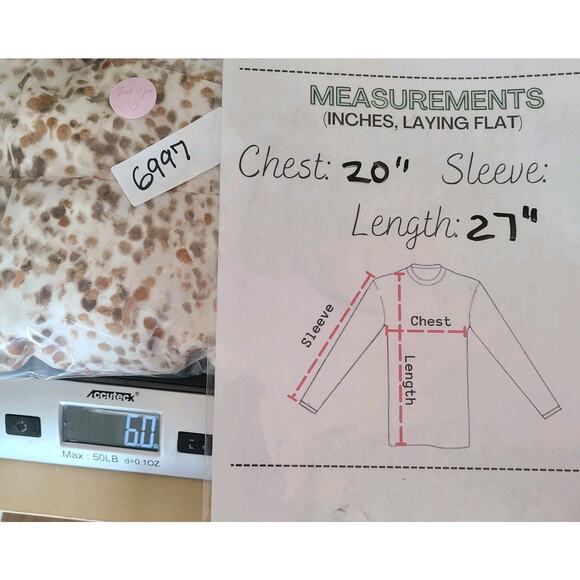 Thank You
6997
MEASUREMENTS
(INCHES, LAYING FLAT)
Chest: 20" Sleeve:
Length: 27"
Sleeve
Chest
Length
Accuteck
6.0
Max : 50LB d=0.1OZ